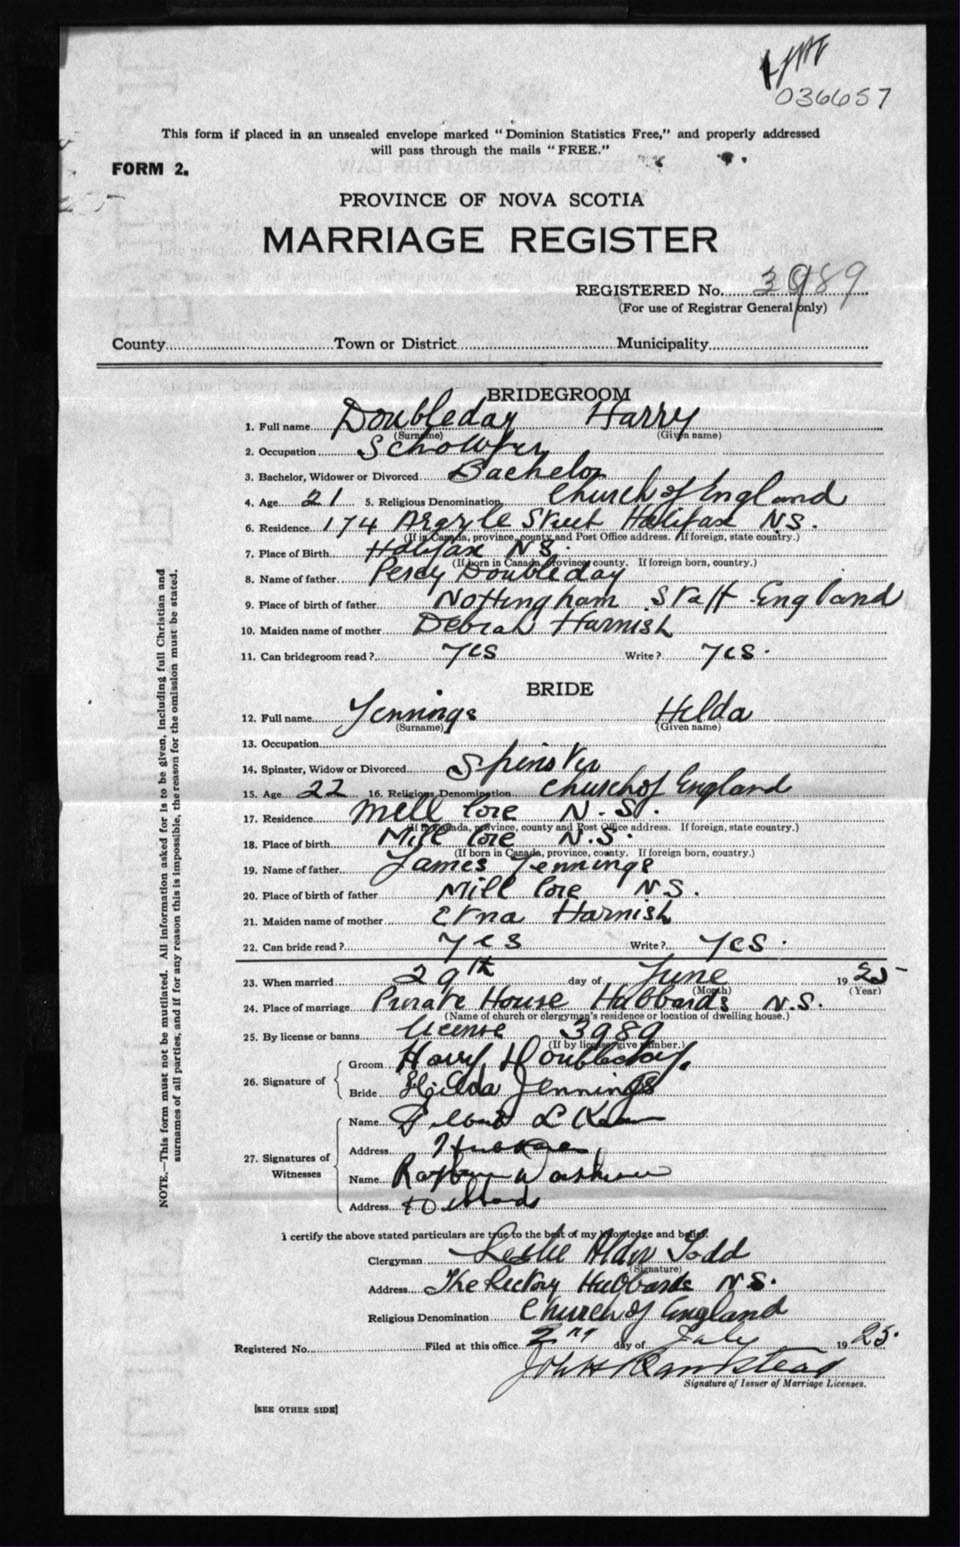 036657
This form if placed in an unsealed envelope marked "Dominion Statistics Free," and properly addressed
will pass through the mails "FREE."
FORM 2.
PROVINCE OF NOVA SCOTIA
MARRIAGE REGISTER
REGISTERED No. 3989
(For use of Registrar General only)
County Town or District Municipality
BRIDEGROOM
1. Full name Doubleday Harry
(Surname) (Given name)
2. Occupation Schowfer
3. Bachelor, Widower or Divorced Bachelor
4. Age 21 5. Religious Denomination Church of England
6. Residence 174 Argyle Street Halifax N.S.
(If in Canada, province, county and Post Office address. If foreign, state country.)
7. Place of Birth Halifax N.S.
(If born in Canada, province, county. If foreign born, country.)
8. Name of father Percy Doubleday
9. Place of birth of father Nottingham Staff England
10. Maiden name of mother Debrah Harnish
11. Can bridegroom read? Yes Write? Yes.
BRIDE
12. Full name Jennings Hilda
(Surname) (Given name)
13. Occupation
14. Spinster, Widow or Divorced Spinster
15. Age 22 16. Religious Denomination Church of England
17. Residence Mill Cove N.S.
(If in Canada, province, county and Post Office address. If foreign, state country.)
18. Place of birth Mill Cove N.S.
(If born in Canada, province, county. If foreign born, country.)
19. Name of father James Jennings
20. Place of birth of father Mill Cove N.S.
21. Maiden name of mother Etna Harnish
22. Can bride read? Yes Write? Yes.
23. When married 29th day of June 1925
(Month) (Year)
24. Place of marriage Private House Hubbards N.S.
(Name of church or clergyman's residence or location of dwelling house.)
25. By license or banns License 3989
(If by license give number.)
26. Signature of
Groom Harry Doubleday.
Bride Hilda Jennings
27. Signatures of Witnesses
Name L
Address
Name
Address
I certify the above stated particulars are true to the best of my knowledge and belief.
Clergyman Leslie Alder Todd
(Signature)
Address The Rectory Hubbards N.S.
Religious Denomination Church of England
Registered No. Filed at this office 2nd day of July 1925.
John
Signature of Issuer of Marriage Licenses.
[SEE OTHER SIDE]
NOTE.—This form must not be mutilated. All information asked for is to be given, including full Christian and
surnames of all parties, and if for any reason this is impossible, the reason for the omission must be stated.